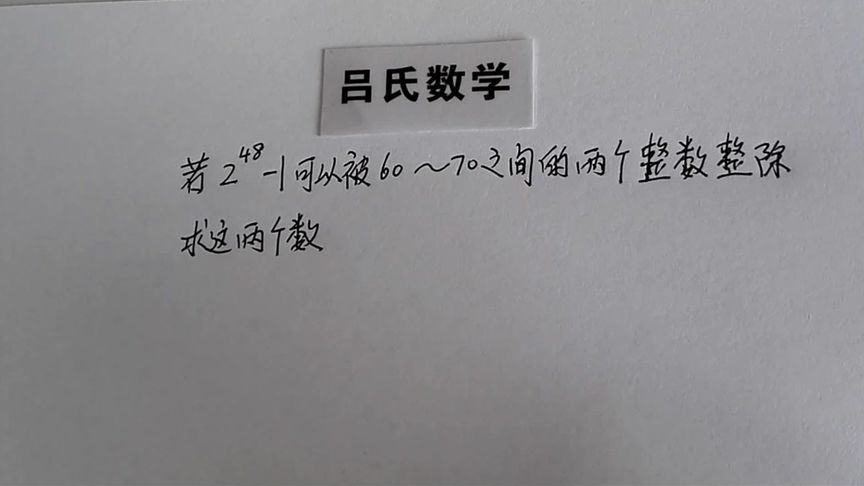 吕氏数学
若2^48-1可以被60~70之间的两个整数整除
求这两个数